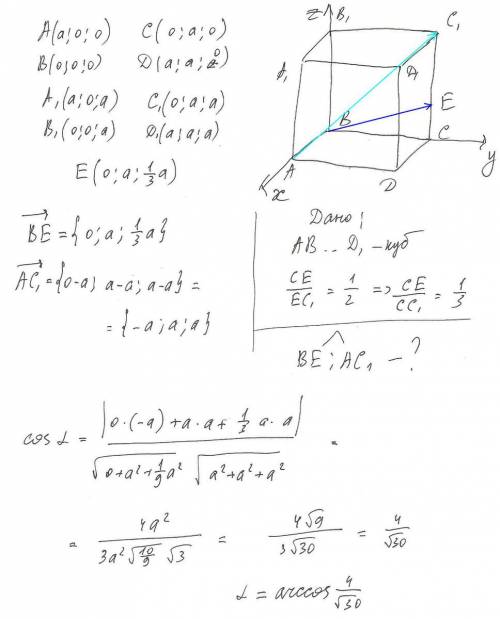 A(a;0;0) C(0;a;0)
B(0;0;0) D(a;a;0)
A₁(a;0;a) C₁(0;a;a)
B₁(0;0;a) D₁(a;a;a)
E(0;a;1/3 a)
z B₁ C₁
A₁ D₁
B E
C
A y
x D
BE = {0; a; 1/3 a}
AC₁ = {0-a; a-a; a-a} =
= {-a; a; a}
Дано:
AB .. D₁ - куб
CE/EC₁ = 1/2 => CE/CC₁ = 1/3
BE; AC₁ - ?
cos α = |0·(-a) + a·a + 1/3 a·a| / (√(0+a²+1/9 a²) √(a²+a²+a²)) =
= 4a² / (3a² √(10/9) √3) = 4√9 / (3√30) = 4/√30
α = arccos 4/√30